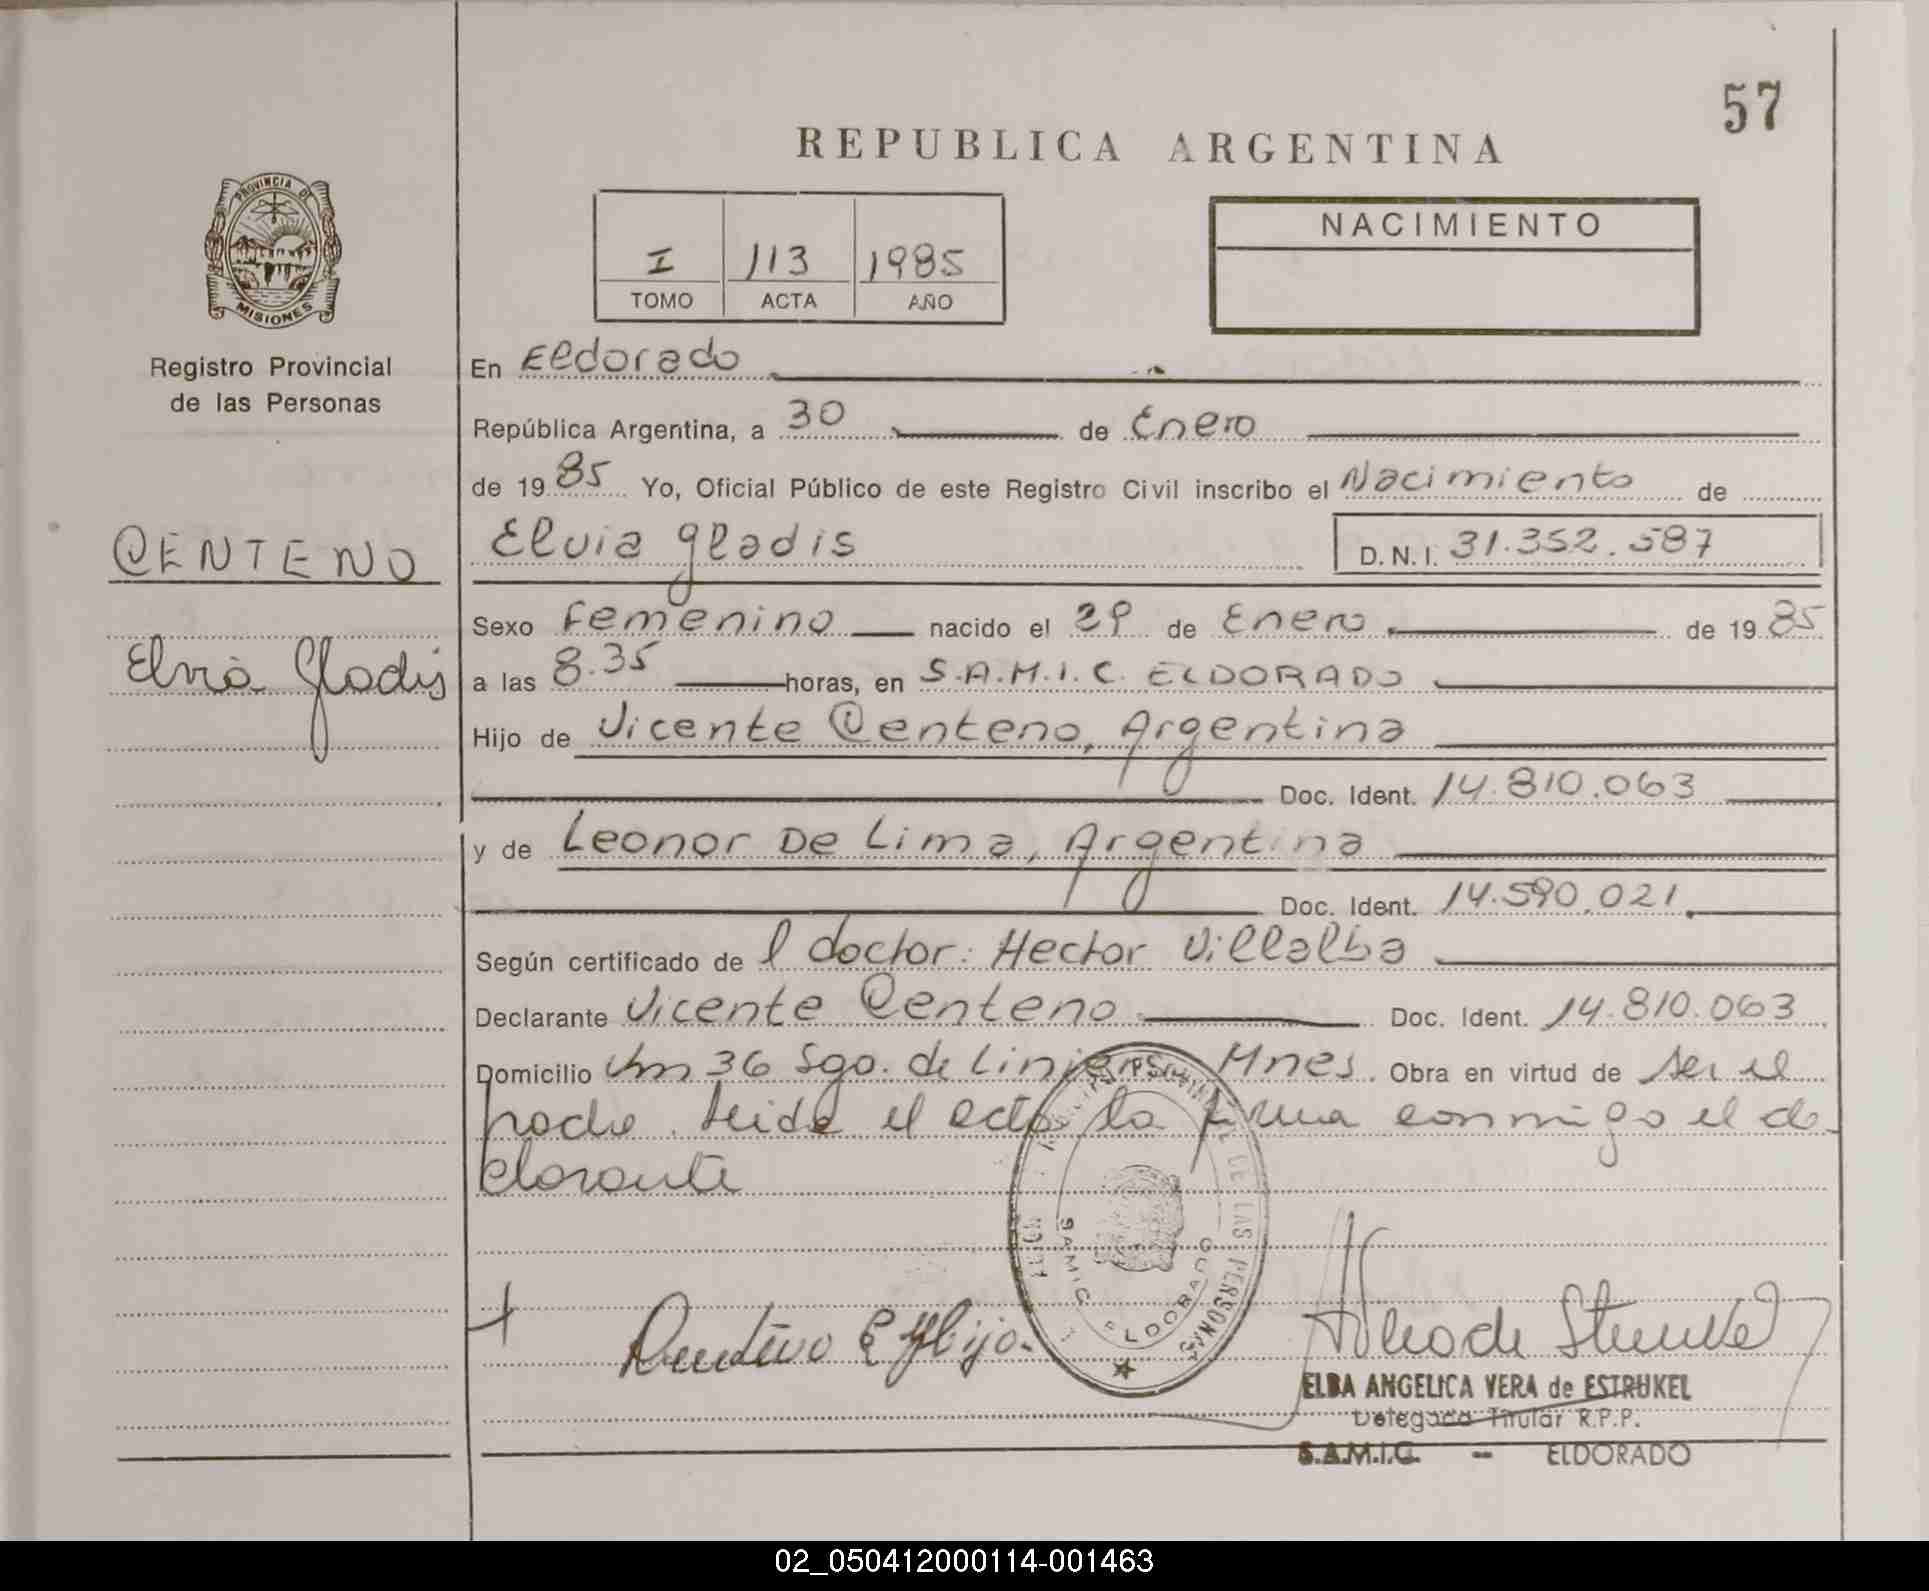 57
REPUBLICA ARGENTINA
PROVINCIA DE
MISIONES
I 113 1985
TOMO ACTA AÑO
NACIMIENTO
Registro Provincial
de las Personas
En Eldorado
República Argentina, a 30 de Enero
de 1985 Yo, Oficial Público de este Registro Civil inscribo el Nacimiento de
CENTENO
Elvia Gladis
Elvia gladis D.N.I. 31.352.587
Sexo Femenino nacido el 29 de Enero de 1985
a las 8.35 horas, en S.A.M.I.C. ELDORADO
Hijo de Vicente Centeno, Argentina
Doc. Ident. 14.810.063
y de Leonor De Lima, Argentina
Doc. Ident. 14.590.021
Según certificado de l doctor: Hector Villalba
Declarante Vicente Centeno Doc. Ident. 14.810.063
Domicilio Km 36 Sgo. de Liniers Mnes. Obra en virtud de ser el
padre. Leida el acta la firma conmigo el de
clarante
DE LAS PERSONAS
SAMIC ELDORADO
ELBA ANGELICA VERA de ESTRUKEL
Delegada Titular R.P.P.
S.A.M.I.C. - ELDORADO
02_050412000114-001463